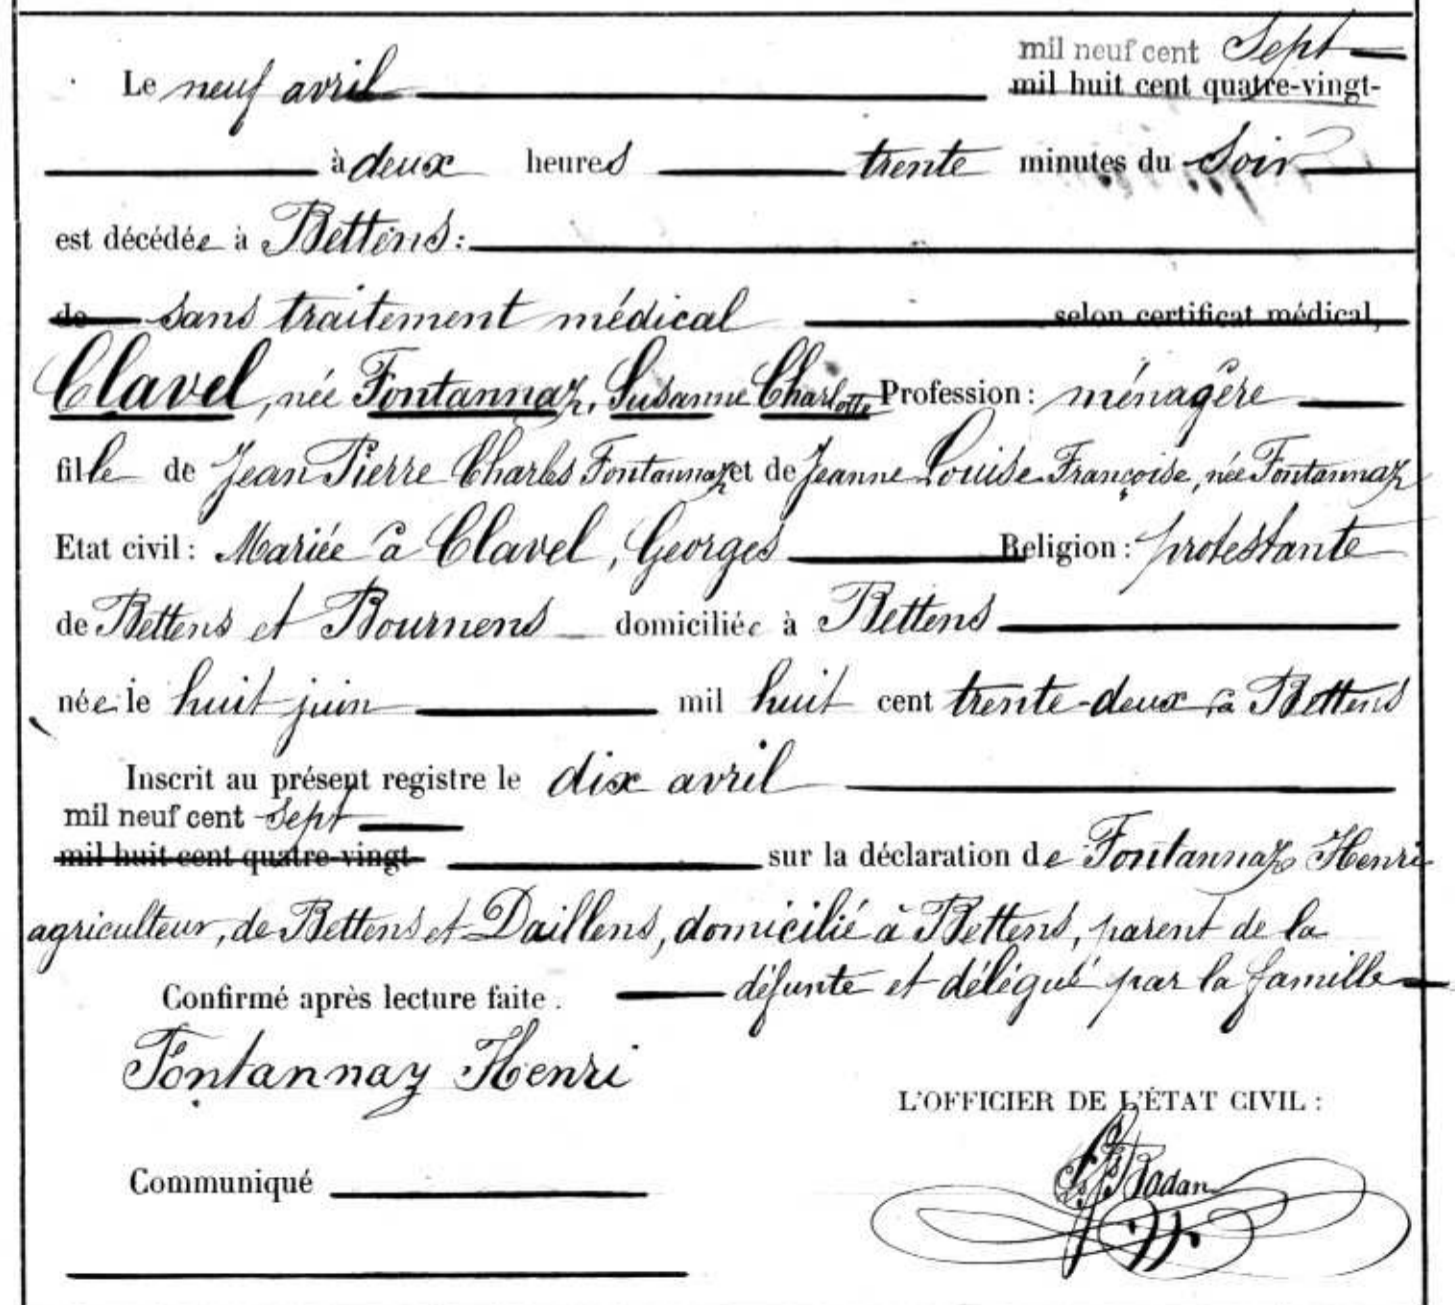 mil neuf cent Sept
Le neuf avril mil huit cent quatre-vingt-
à deux heures trente minutes du Soir
est décédée à Bettens:
de sans traitement médical selon certificat médical,
Clavel, née Fontannaz, Susanne Charlotte Profession: ménagère
fille de Jean Pierre Charles Fontannaz et de Jeanne Louise Françoise, née Fontannaz
Etat civil: Mariée à Clavel, Georges Religion: protestante
de Bettens et Bournens domiciliée à Bettens
née le huit juin mil huit cent trente-deux à Bettens
Inscrit au présent registre le dix avril
mil neuf cent Sept
mil huit cent quatre-vingt- sur la déclaration de Fontannaz Henri
agriculteur, de Bettens et Daillens, domicilié à Bettens, parent de la
défunte et délégué par la famille
Confirmé après lecture faite.
Fontannaz Henri
L'OFFICIER DE L'ÉTAT CIVIL:
Communiqué